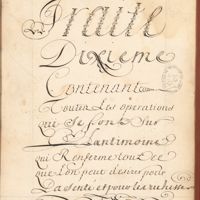 Traité
Dixieme
Contenant
Toutes Les opérations
que Se font Sur
L'antimoine
qui Renferme tout ce
que L'on peut desirer pour
La Santé et pour les richesses